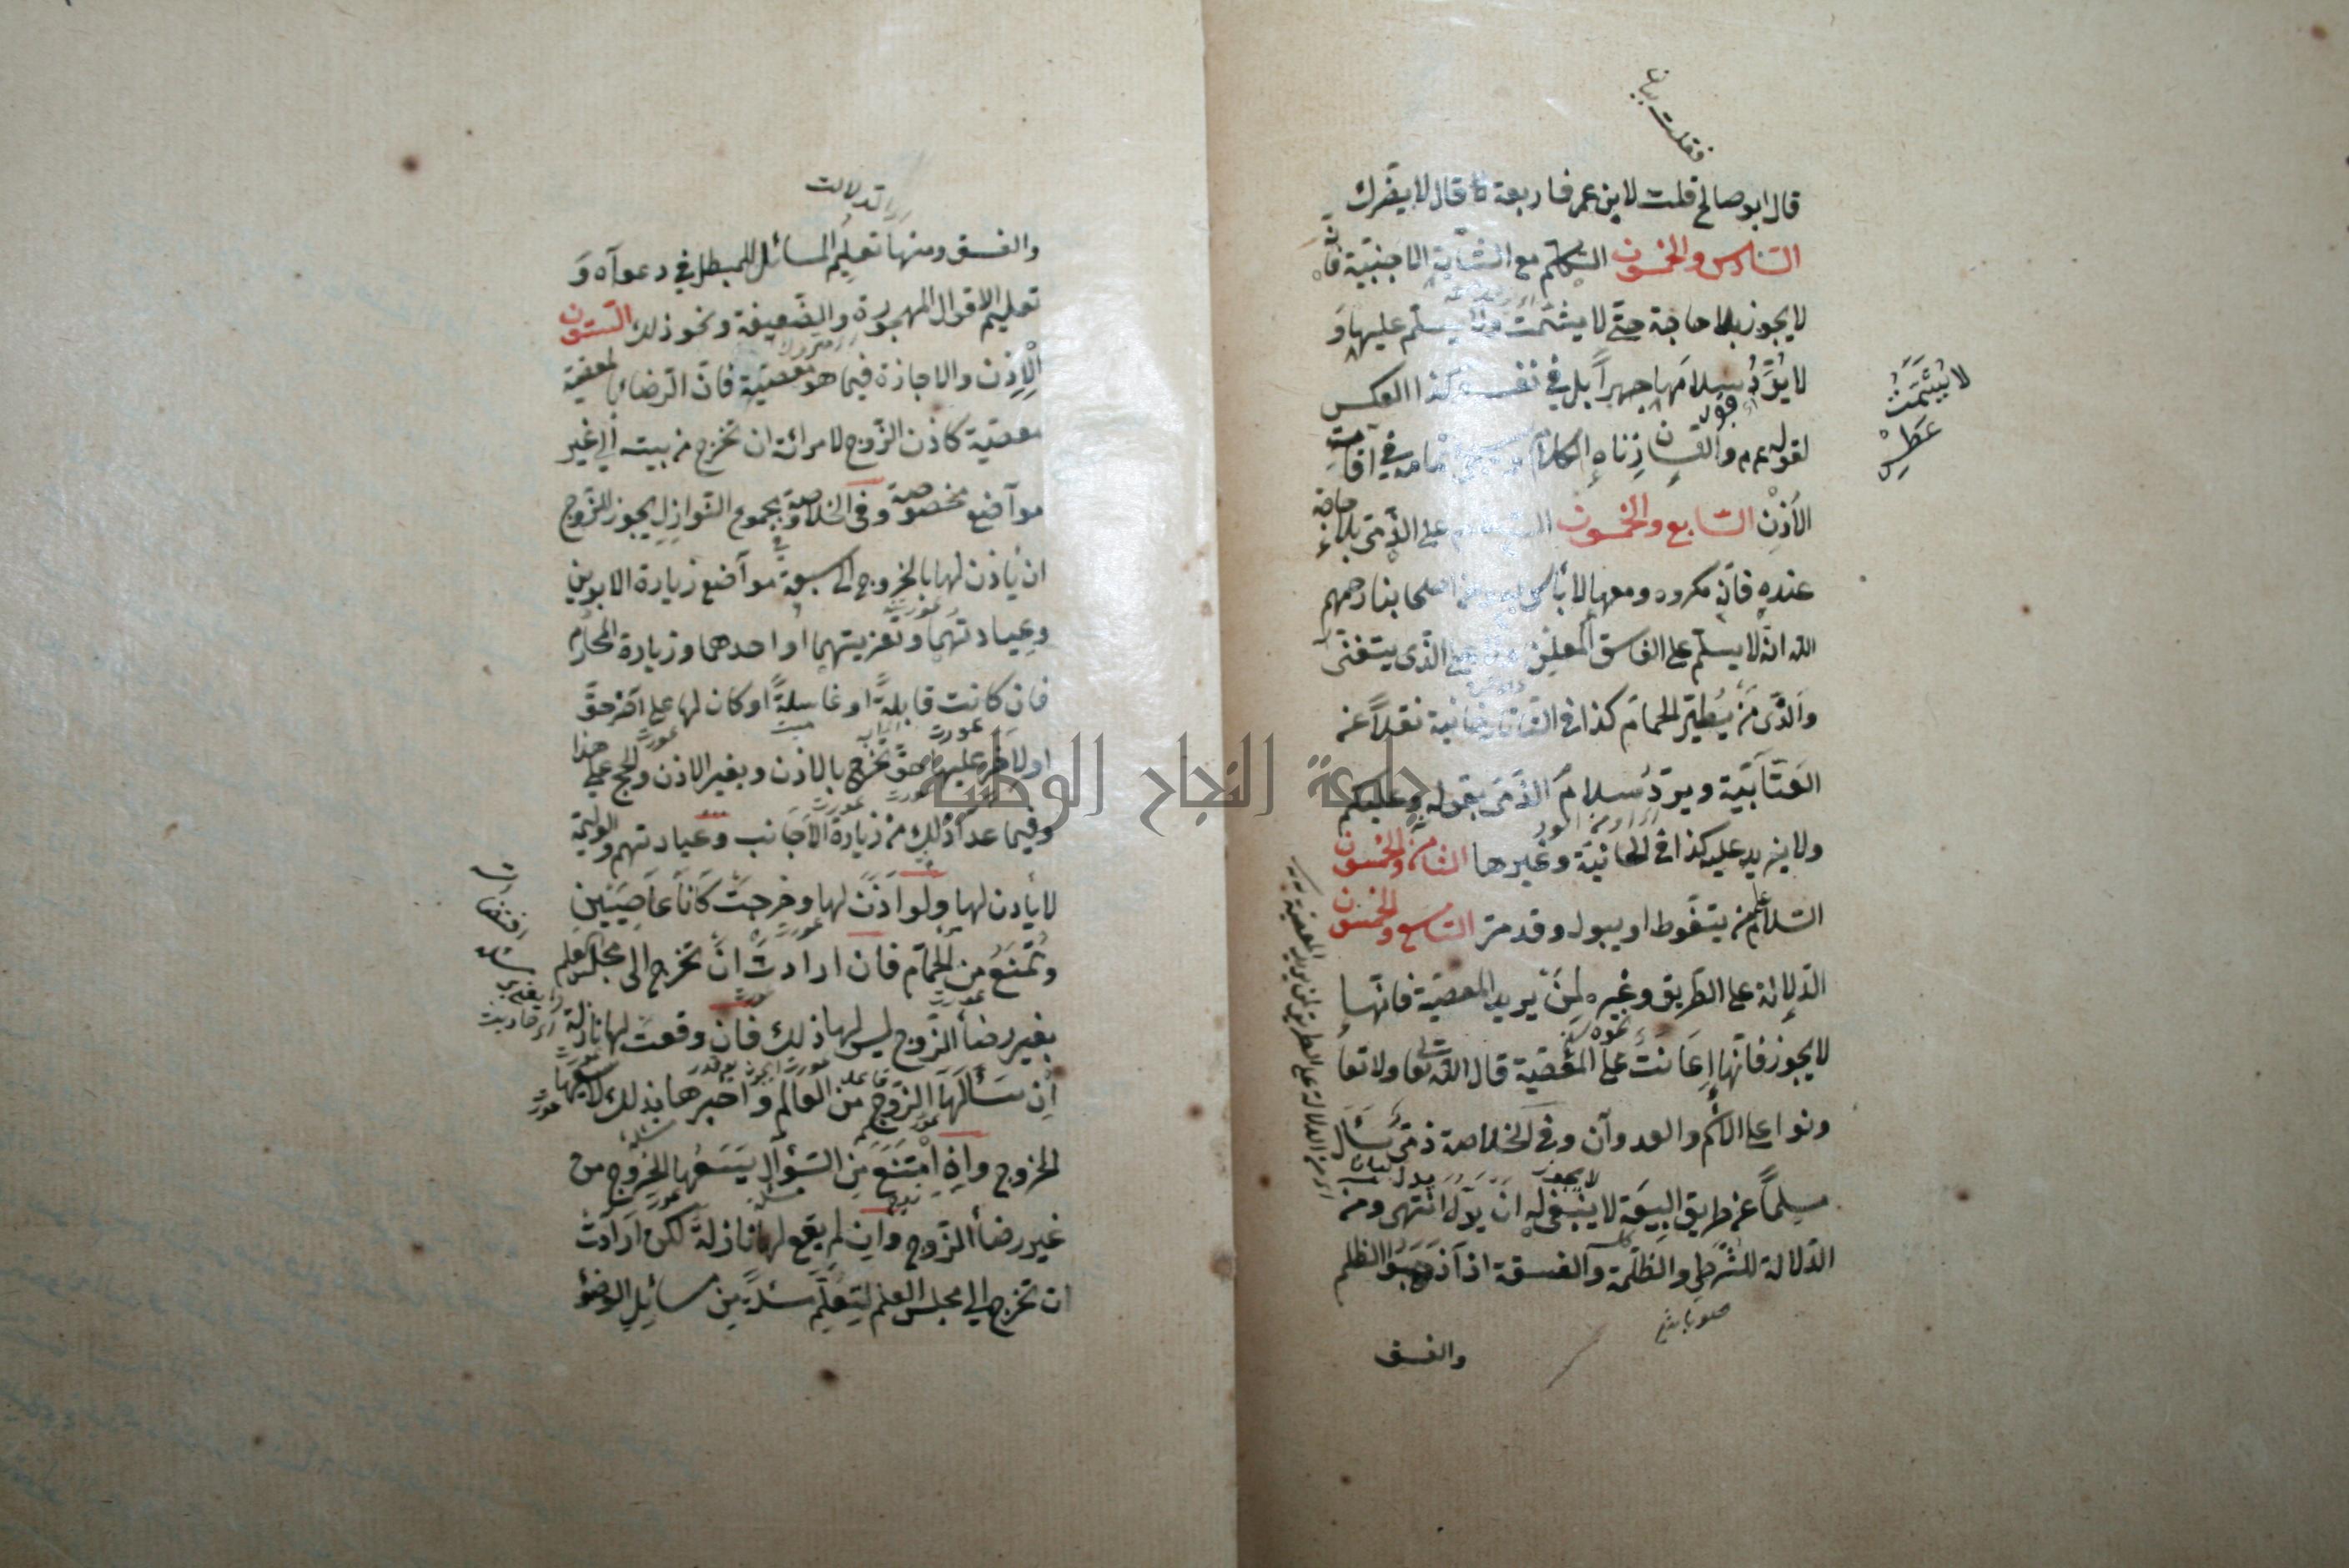 فقلت بيان
قال ابو صالح قلت لابن عمر فاربعة قال لا يضرك
السادس والخمسون التكلم مع الشابة الاجنبية فانه
لا يجوز بلا حاجة حتى لا يشمت ولا يسلم عليها و
لا يرد سلامها جهرا بل في نفسه وكذا العكس
لقوله عم واللسان زناه الكلام تمامه في آفات
الاذن السابع والخمسون السلام على الذمى بلا حاجة
عنده فانه مكروه ومعها لا بأس اصحابنا رحمهم
الله انه لا يسلم على الفاسق المعلن ولا على الذى يتغنى
والذى من يطير الحمام كذا في التاتارخانية نقلا عن
العتابية ويرد سلام الذمى بقوله وعليكم
ولا يزيد عليه كذا في الخانية وغيرها الثامن والخمسون
السلام على من يتغوط او يبول وقد مر التاسع والخمسون
الدلالة على الطريق وغيره لمن يريد المعصية فانها
لا يجوز فانها اعانت على المعصية قال الله تعالى ولا تعا
ونوا على الاثم والعدوان وفي الخلاصة ذمى سأل
مسلما عن طريق البيعة لا ينبغي له ان يدله انتهى ومن
الدلالة للشرطى والظلمة والفسقة اذا ذهبوا الظلم
والفسق
لا يشمت
عطس
اى تدلالت
والفسق ومنها تعليم المسائل للمبطل في دعواه و
تعليم الاقوال المهجورة والضعيفة ونحو ذلك الستون
الاذن والاجازة فيما هو معصية فان الرضاء لمعصية
معصية كاذن الزوج لامرأته ان تخرج من بيته الى غير
مواضع مخصوصة وفي الخلاصة ومجموع النوازل يجوز للزوج
ان يأذن لها بالخروج الى سبعة مواضع زيارة الابوين
وعيادتهما وتعزيتهما او احدهما وزيارة المحارم
فان كانت قابلة او غاسلة او كان لها على آخر حق
او لآخر عليها حق تخرج بالاذن وبغير الاذن والحج على هذا
وفيما عدا ذلك من زيارة الاجانب وعيادتهم والوليمة
لا يأذن لها ولو اذن لها وخرجت كانا عاصيين
وتمنع من الحمام فان ارادت ان تخرج الى مجلس العلم
بغير رضأ الزوج ليس لها ذلك فان وقعت لها نازلة
ان سألها الزوج من العالم واخبرها بذلك لا يسعها
الخروج وان امتنع من السؤال يسعها الخروج من
غير رضأ الزوج وان لم يقع لها نازلة لكن ارادت
ان تخرج الى مجلس العلم لتعلم مسئلة من مسائل الوضؤ
جامعة النجاح الوطنية